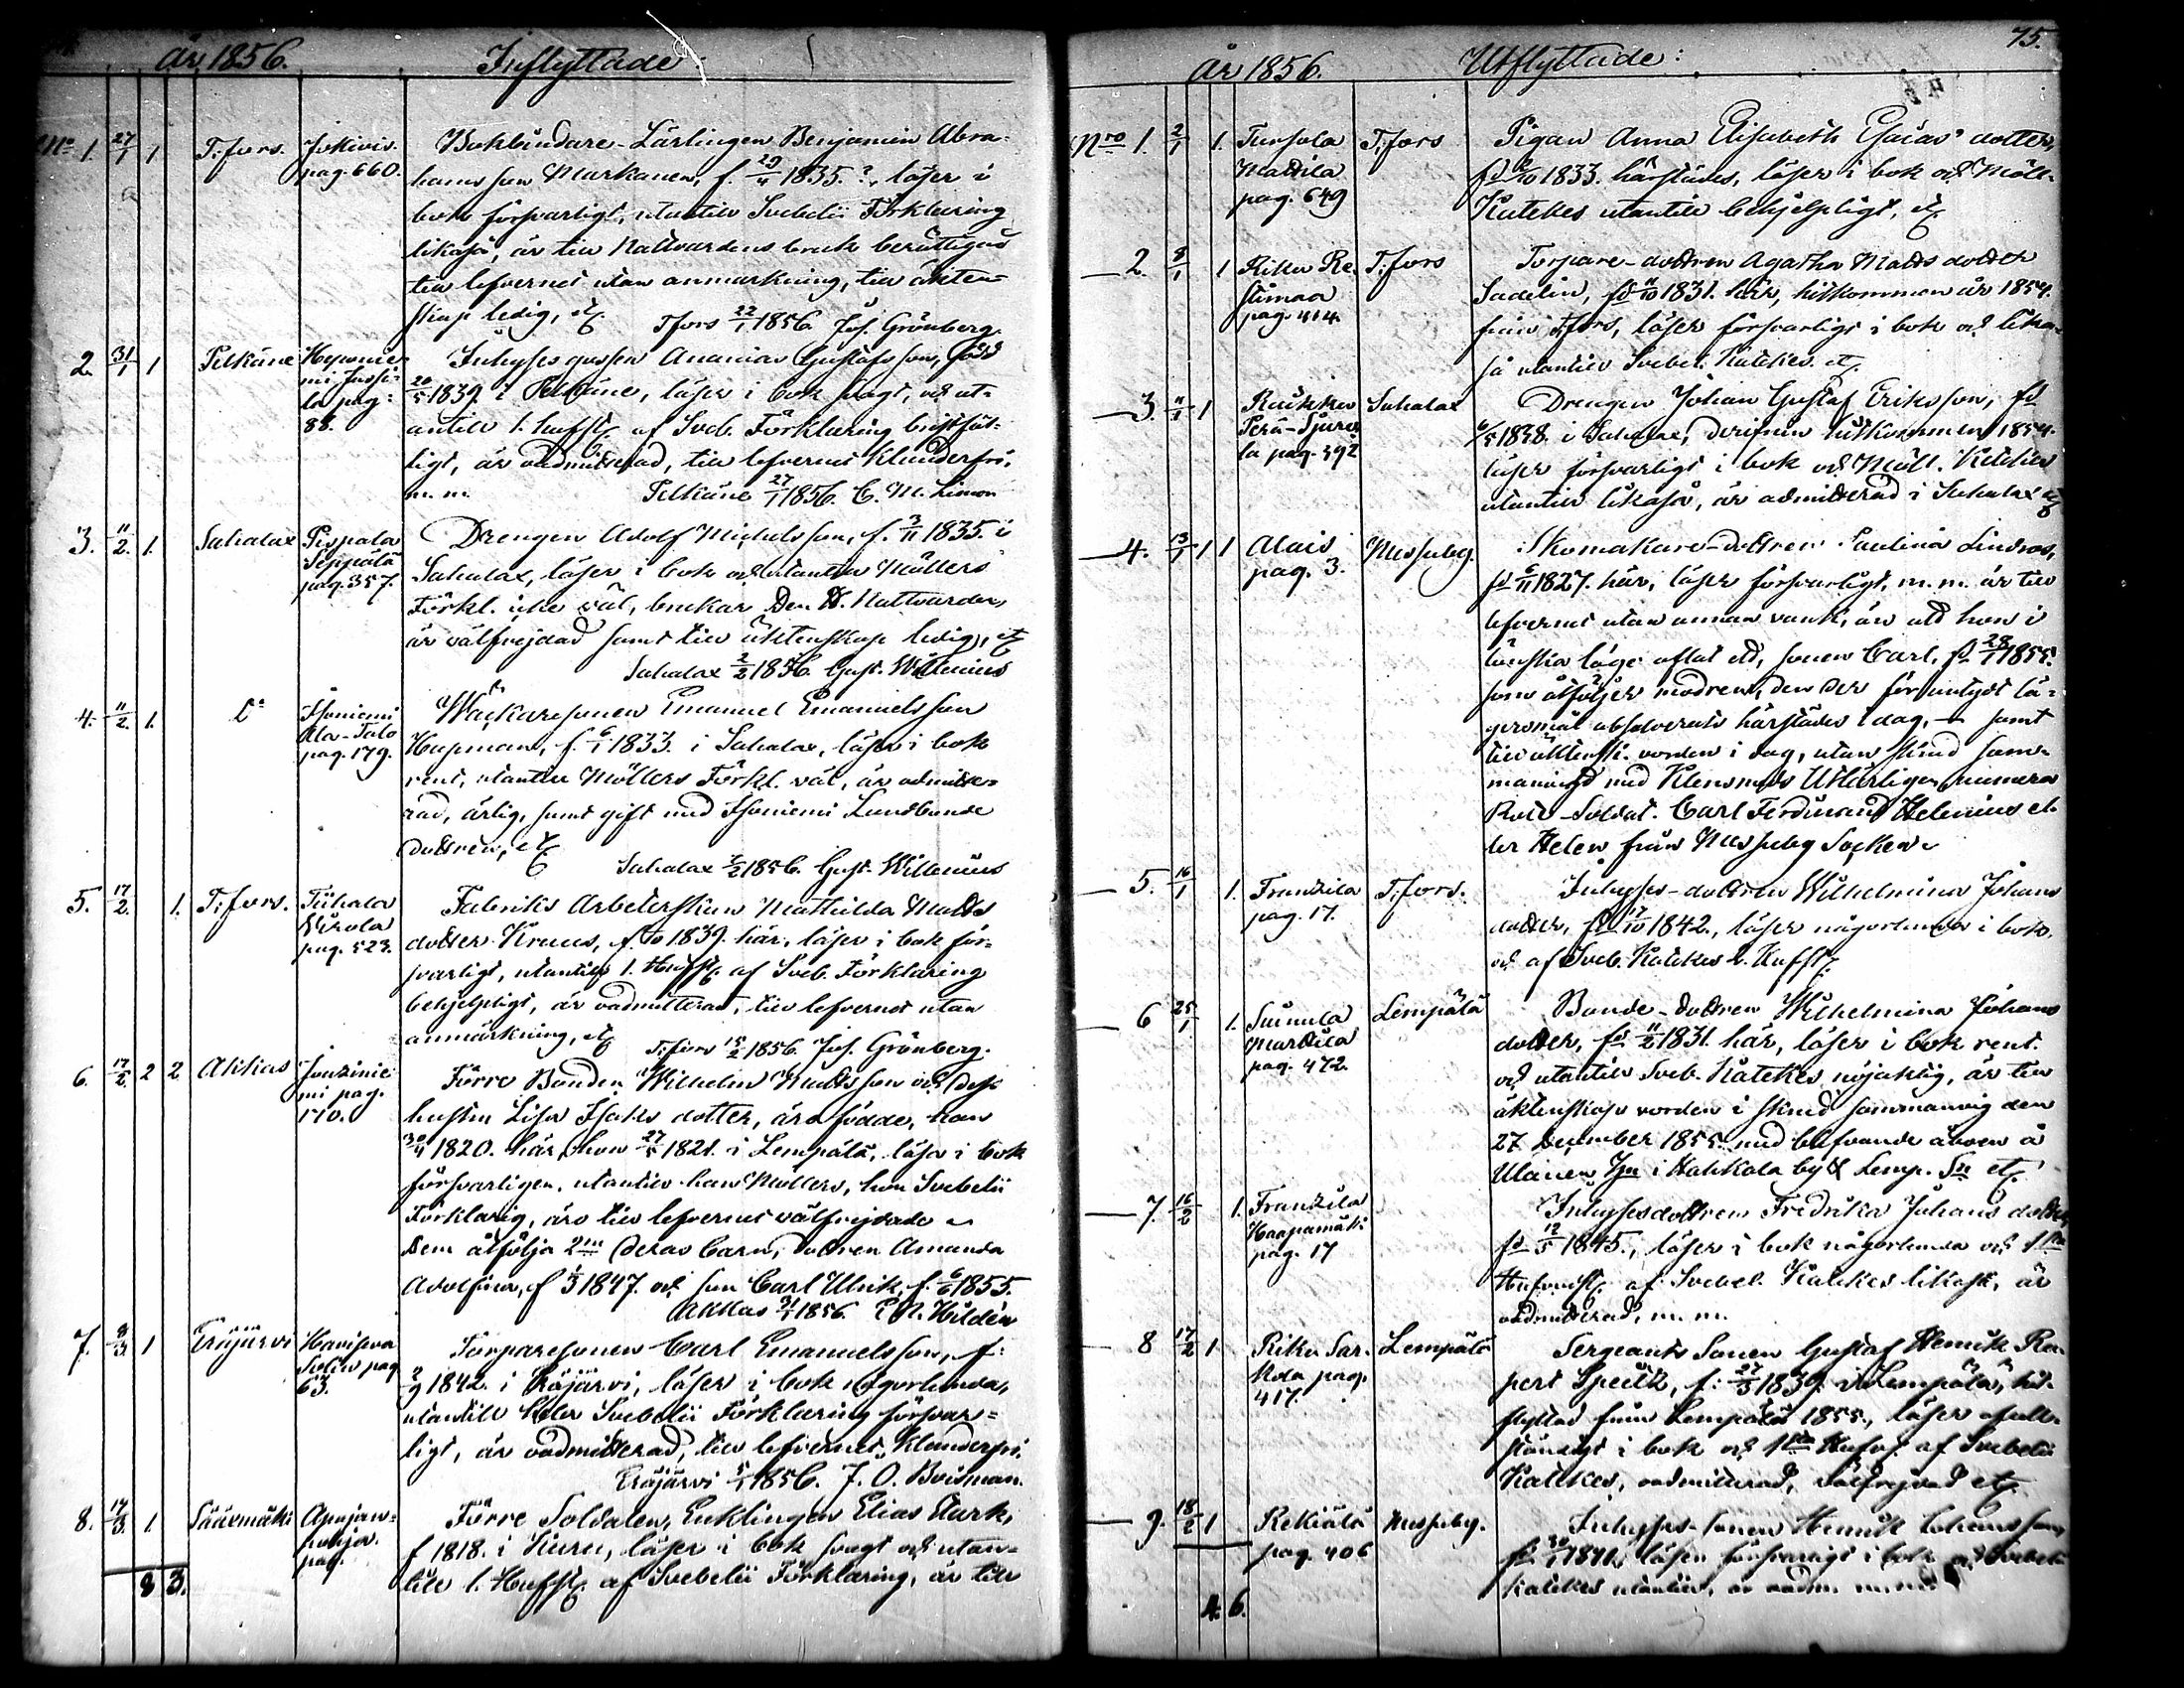 År 1856. Inflyttade:
No 1. 27/1 1 T:fors. Jokivis. pag. 660.
Bokbindare-Lärlingen Benjamin Abra-
hams son Markanen, f. 29/4 1835.?, läser i
bok försvarligt, utantill Svebelii Förklaring
likaså, är till Nattvardens bruk berättigad
till lefvernet utan anmärkning, till äkten-
skap ledig, etc.
Tfors 22/1 1856. Joh. Grönberg.
2. 31/1 1 Pelkäne pag. 88.
Inhyses gossen Ananias Gustafs son, född
20/5 1839 i Pelkäne, läser i bok svagt, och ut-
antill 1. hufst. af Sveb. Förklaring bristfäl-
ligt, är oadmitterad, till lefvernet klanderfri.
m. m. Pelkäne 27/1 1856. C. M. Limon
3. 11/2. 1. Sahalax Pispala Seppälä pag. 357.
Drengen Adolf Michels son, f. 3/11 1835. i
Sahalax, läser i bok och utantill Möllers
Förkl. icke väl, brukar Den H. Nattvarden,
är välfrejdad samt till äktenskap ledig, etc
Sahalax 2/2 1856. Gust. Willenius
4. 11/2. 1. Do Isoniemi Ala-Talo pag. 179.
Wäckaresonen Emanuel Emanuelsson
Hapman, f. 6/1 1833. i Sahalax, läser i bok
rent, utantill Möllers Förkl. väl, är admitte-
rad, ärlig, samt gift med Isoniemi Landbonde
dottren, etc
Sahalax 2/2 1856. Gust. Willenius
5. 17/2. 1. T:fors. pag. 523.
Fabriks Arbeterskan Mathilda Matts
dotter Kraus, 1839. här, läser i bok för-
svarligt, utantill 1. Hufst. af Sveb. Förklaring
behjelpligt, är oadmitterad, till lefvernet utan
anmärkning, etc T:fors 15/2 1856. Joh. Grönberg.
6. 17/2 2 2 Akkas pag. 170.
Förre Bonden Wilhelm Matts son och dess
hustru Lisa Isaks dotter, äro födde, han
30/4 1820. här, hon 27/5 1821. i Lempälä, läsa i bok
försvarligen, utantill han Möllers, hon Svebelii
Förklarig, äro till lefvernet välfrejdade
Dem åtfölja 2ne deras barn, dottren Amanda
Adolfina, f 1/3 1847. och son Carl Ulrik, f. 6/6 1855.
Akkas 31/1 1856. Hildén
7. 9/3 1 Eräjärvi pag 63.
Torparesonen Carl Emanuelsson, f:
2/9 1842. i Eräjärvi, läser i bok någorlunda,
utantill hela Svebelii Förklaring försvar-
ligt, är oadmitterad, till lefvernet klanderfri.
Eräjärvi 1856. J. O. Boisman.
8. 14/3. 1. Sääxmäki pag.
Förre Soldaten, Enklingen Elias Stark,
f 1818. i Kuru, läser i bok svagt och utan-
till 1. Hufst. af Svebelii Förklaring, är till
8 3.
75.
År 1856. Utflyttade:
Nro 1. 2/1 1. Turfola Mattila pag. 649 T;fors
Pigan Anna Elisabeth Esaias dotter,
1833. härstädes, läser i bok och Möll.
Katekes utantill behjelpligt, etc
2. 8/1 1 pag. 414. T:fors
Torpare-dottren Agatha Matts dotter
Sadelin, fd 11/10 1831. här, hitkommen år 1854.
från Tfors, läser försvarligt i bok och lika-
så utantill Svebel. Katekes. etc
3. 11/1 1 pag. 392 Sahalax
Drengen Johan Gustaf Eriksson, fd
6/5 1838. i Sahalax, derifrån hitkommen 1854.
läser försvarligt i bok och Möll.
utantill likaså, är admitterad i Sahalax etc
4. 13/1 1 1 Alais pag. 3. Messuby.
Skomakare-dottren Paulina Lindroos,
fd 6/11 1827. här, läser försvarligt, m. m. är till
lefvernet utan annan vank, än att hon i
lönska läge aflat ett, sonen Carl, fd 28/1 1855.
som åtföljer modren, den der för lä-
gersmål absolverats härstädes idag, – samt
till äktensk. vorden i dag, utan skrud sam-
manvigd med Klensmeds numera
Rote-Soldat. Carl Ferdinand Helenius el-
ler Helen från Messuby Socken
5. 16/1 1. Frankila pag. 17. T:fors.
Inhyses-dottren Wilhelmina Johans
dotter, fd 17/10 1842., läser någorlunda i bok.
och af Sveb. Katekes 1. Hufst.
6 25/1 1. Suinula Marttila pag. 472. Lempälä
Bonde-dottren Wilhelmina Johans
dotter, fd 11/2 1831. här, läser i bok rent.
och utantill Sveb. Katekes nöjaktig, är till
äktenskap vorden i skrud sammanvig den
27 December 1855. med blifvande åboen å
Ulanen i Hakkala by & Lemp. Sn etc.
7. 16/2 1. Frankila Haapamäki pag. 17
Inhysesdottren Fredrika Johans dotter,
fd 12/5 1845., läser i bok någorlunda och 1sta
af Svebel. Katekes likaså, är
oadmitterad, m. m.
8 17/2 1 pag. 417. Lempälä
Sergeants Sonen Gustaf Henrik Ro-
pert Speitz, f: 27/3 1839. i Lempälä, hit-
flyttad från Lempälä 1855, läser ofull-
ständigt i bok och 1sta af Svebelii
Katekes, oadmitterad, välfrejdad etc
9. 18/2 1 Rekiälä pag. 406 Messuby.
Inhyses-sonen Henrik Johansson,
läser försvarligt i bok och Svebel.
Katekes utantill, är oadm. m. m.
4. 6.